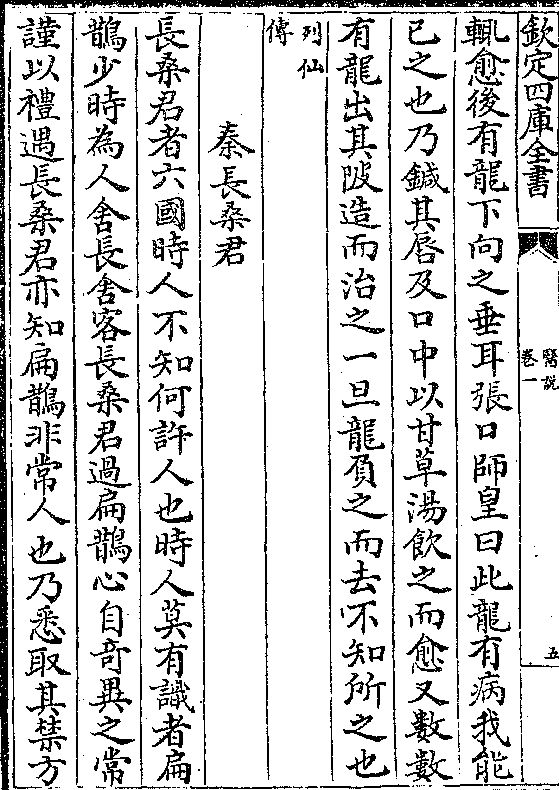 欽定四庫全書
醫説
卷一
五
輒愈後有龍下向之垂耳張口師皇曰此龍有病我能
已之也乃鍼其唇及口中以甘草湯飲之而愈又數數
有龍出其陂造而治之一旦龍負之而去不知所之也
列仙
傳
秦長桑君
長桑君者六國時人不知何許人也時人莫有識者扁
鵲少時為人舍長舍客長桑君過扁鵲心自奇異之常
謹以禮遇長桑君亦知扁鵲非常人也乃悉取其禁方